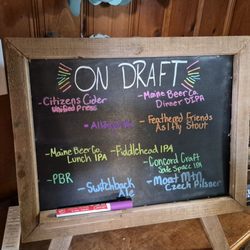 ON DRAFT
- Citizens Cider
Unified Press
- Maine Beer Co.
Dinner DIPA
- Feathered Friends
As I Fly Stout
- Maine Beer Co.
Lunch IPA
- Fiddlehead IPA
- Concord Craft
Safe Space IPA
- PBR
- Switchback
Ale
- Moat Mtn
Czech Pilsner